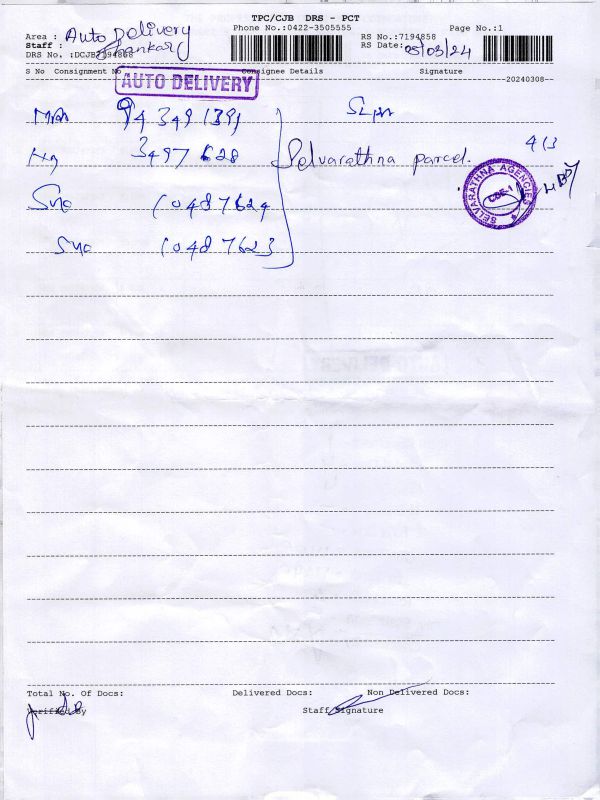 TPC/CJB DRS - PCT
Area : Auto Delivery
Phone No.:0422-3505555
Page No.:1
Staff : Shankar
RS No.:7194858
RS Date: 05/03/24
DRS No. :DCJB7194858
S No Consignment No Consignee Details Signature
AUTO DELIVERY
20240308
94 349 1391
3497628 Selvarathna parcel.
SELVARATHNA AGENCIES
CBE-1
10487624
10487623
Total No. Of Docs: Delivered Docs: Non Delivered Docs:
Verified By Staff Signature